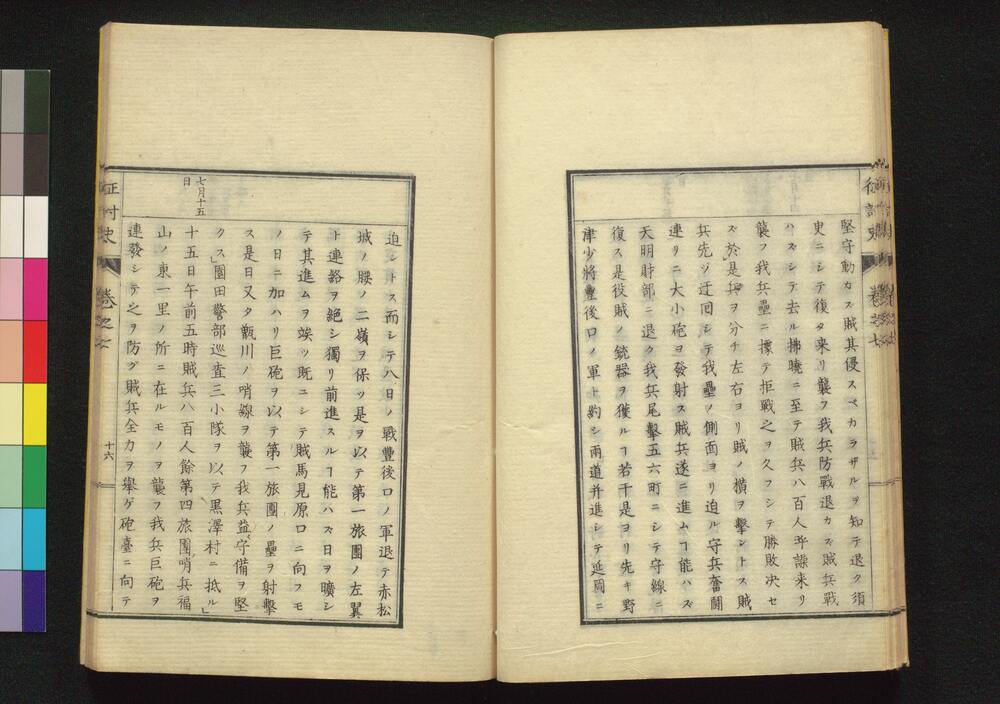 堅守動カズ賊其侵スベカラザルヲ知テ退ク須
史ニシテ復タ来リ襲フ我兵防戰退カズ賊兵戰
ハズシテ去ル拂曉ニ至テ賊兵八百人呼譟来リ
襲フ我兵壘ニ據テ拒戰之ヲ久フシテ勝敗决セ
ズ於是兵ヲ分チ左右ヨリ賊ノ橫ヲ擊ントス賊
兵先ジ迂回シテ我壘ノ側面ヨリ迫ル守兵奮鬪
連リニ大小砲ヲ發射ス賊兵遂ニ進ムヿ能ハズ
天明財部ニ退ク我兵尾擊五六町ニシテ守線ニ
復ス是役賊ノ銃器ヲ獲ルヿ若干是ヨリ先キ野
津少將豐後口ノ軍ト約シ兩道并進シテ延岡ニ
七月十五
日
迫ントス而シテ八日ノ戰豐後口ノ軍退テ赤松
城ノ腰ノ二嶺ヲ保ツ是ヲ以テ第一旅團ノ左翼
ト連絡ヲ絕シ獨リ前進スルヿ能ハズ日ヲ曠シ
テ其進ムヲ竢ツ既ニシテ賊馬見原口ニ向フモ
ノ日ニ加ハリ巨砲ヲ以テ第一旅團ノ壘ヲ射擊
ス是日又タ甑川ノ哨線ヲ襲フ我兵益守備ヲ堅
クス」園田警部巡查三小隊ヲ以テ黑澤村ニ抵ル」
十五日午前五時賊兵八百人餘第四旅團哨兵福
山ノ東一里ノ所ニ在ルモノヲ襲フ我兵巨砲ヲ
連發シテ之ヲ防グ賊兵全カヲ擧ゲ砲臺ニ向テ
征討史
卷之七
十六